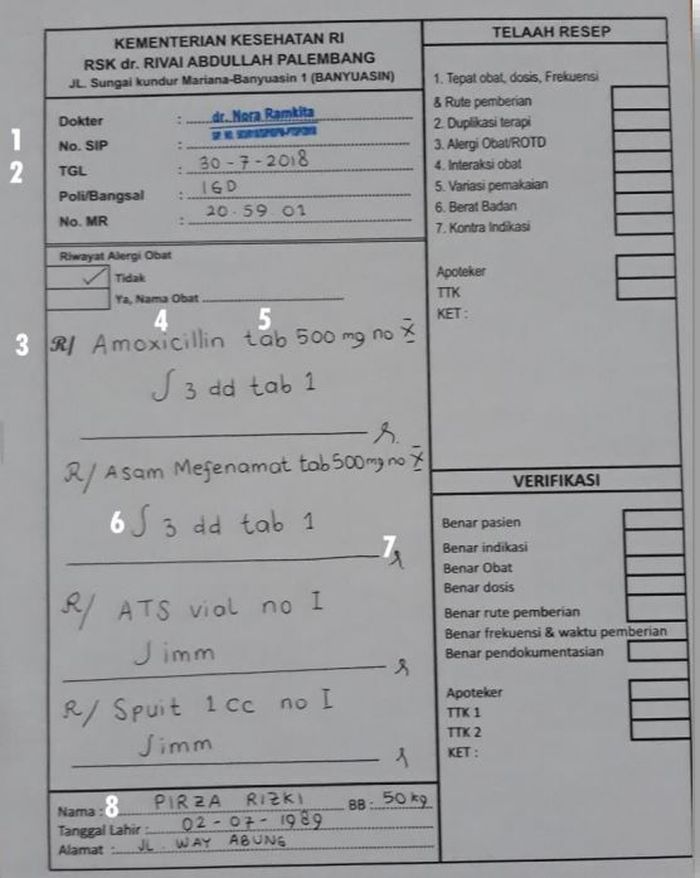 KEMENTERIAN KESEHATAN RI
RSK dr. RIVAI ABDULLAH PALEMBANG
JL. Sungai kundur Mariana-Banyuasin 1 (BANYUASIN)
Dokter : dr. Nora Ramkita
1 No. SIP :
2 TGL : 30-7-2018
Poli/Bangsal : IGD
No. MR : 20.59.01
Riwayat Alergi Obat
✓ Tidak
Ya, Nama Obat
4 5
3 R/ Amoxicillin tab 500 mg no X
∫ 3 dd tab 1
R/ Asam Mefenamat tab 500 mg no X
6 ∫ 3 dd tab 1
7
R/ ATS vial no I
∫ imm
R/ Spuit 1 cc no I
∫ imm
Nama : 8 PIRZA RIZKI BB : 50 kg
Tanggal Lahir : 02-07-1989
Alamat : JL. WAY ABUNG
TELAAH RESEP
1. Tepat obat, dosis, Frekuensi
& Rute pemberian
2. Duplikasi terapi
3. Alergi Obat/ROTD
4. Interaksi obat
5. Variasi pemakaian
6. Berat Badan
7. Kontra Indikasi
Apoteker
TTK
KET :
VERIFIKASI
Benar pasien
Benar indikasi
Benar Obat
Benar dosis
Benar rute pemberian
Benar frekuensi & waktu pemberian
Benar pendokumentasian
Apoteker
TTK 1
TTK 2
KET :